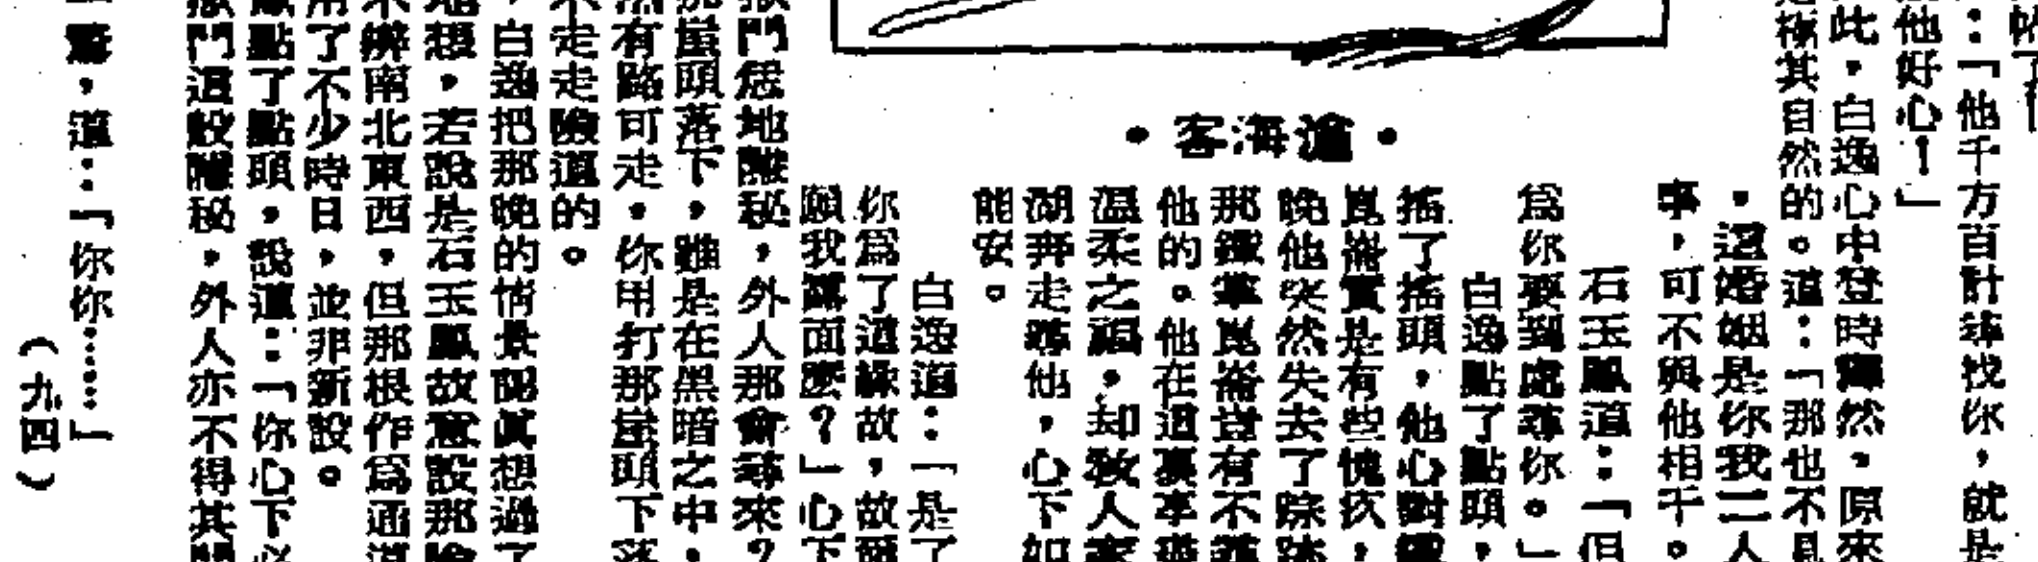 帖了
：「他千方百計尋找你，就是
他好心！」
此，白逸心中登時釋然。原來
極其自然的。道：「那也不是
，這婚姻是你我二人
事，可不與他相干。
石玉鳳道：「但
為你要到處尋你。」
白逸點了點頭，
搖了搖頭，他心對鐵
崑崙實是有些愧疚，
晚他突然失去了踪跡
那鐵掌崑崙豈有不尋
他的。他在這裏享盡
溫柔之福，却教人家
湖奔走尋他，心下如
能安。
•滄海客•
白逸道：「是了
你為了這緣故，故爾
願我露面麼？」心下
獄門恁地隱秘，外人那會尋來？
那崖頭落下，雖是在黑暗之中，
然有路可走，你用打那崖頭下落
不走走險道的。
，白逸把那晚的情景認真想過了
地想，若說是石玉鳳故意設那險
不辨南北東西，但那根作為通道
用了不少時日，並非新設。
鳳點了點頭，說道：「你心下必
獄門這般隱秘，外人亦不得其門
一驚，道：「你你……」
（九四）